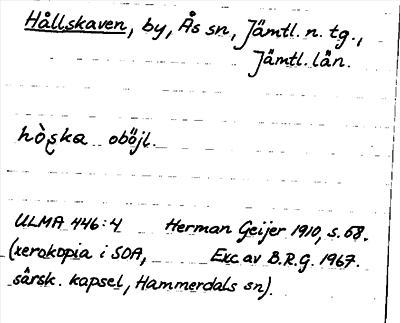 Hållskaven, by, Ås sn, Jämtl. n. tg.,
Jämtl. län.
hò̜ska oböjl.
ULMA 446:4 Herman Geijer 1910, s. 68.
(xerokopia i SOA, Exc av B.R.G. 1967.
särsk. kapsel, Hammerdals sn).